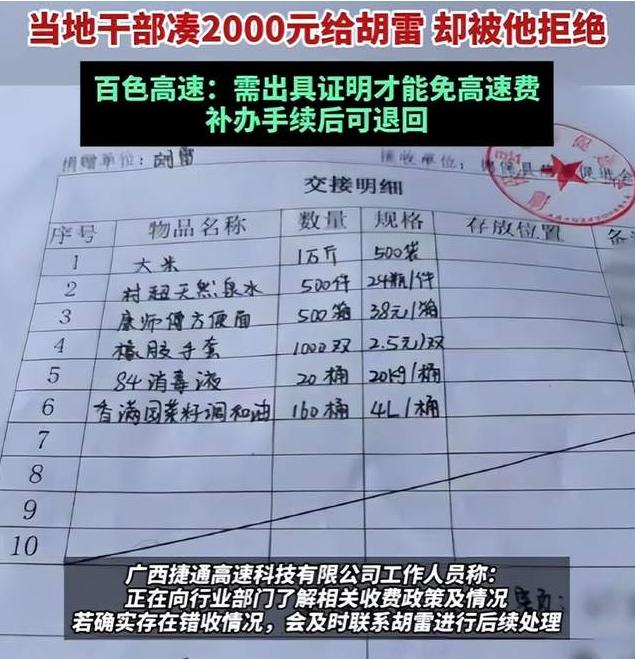 当地干部凑2000元给胡雷 却被他拒绝
百色高速：需出具证明才能免高速费
补办手续后可退回
捐赠单位：胡雷 接收单位：
交接明细
序号 物品名称 数量 规格 存放位置 备
1 大米 1万斤 500袋
2 村超天然泉水 500件 24瓶/件
3 康师傅方便面 500箱 38元/箱
4 橡胶手套 1000双 2.5元/双
5 84消毒液 20桶 20kg/桶
6 香满园菜籽调和油 160桶 4L/桶
7
8
9
10
广西捷通高速科技有限公司工作人员称：
正在向行业部门了解相关收费政策及情况
若确实存在错收情况，会及时联系胡雷进行后续处理